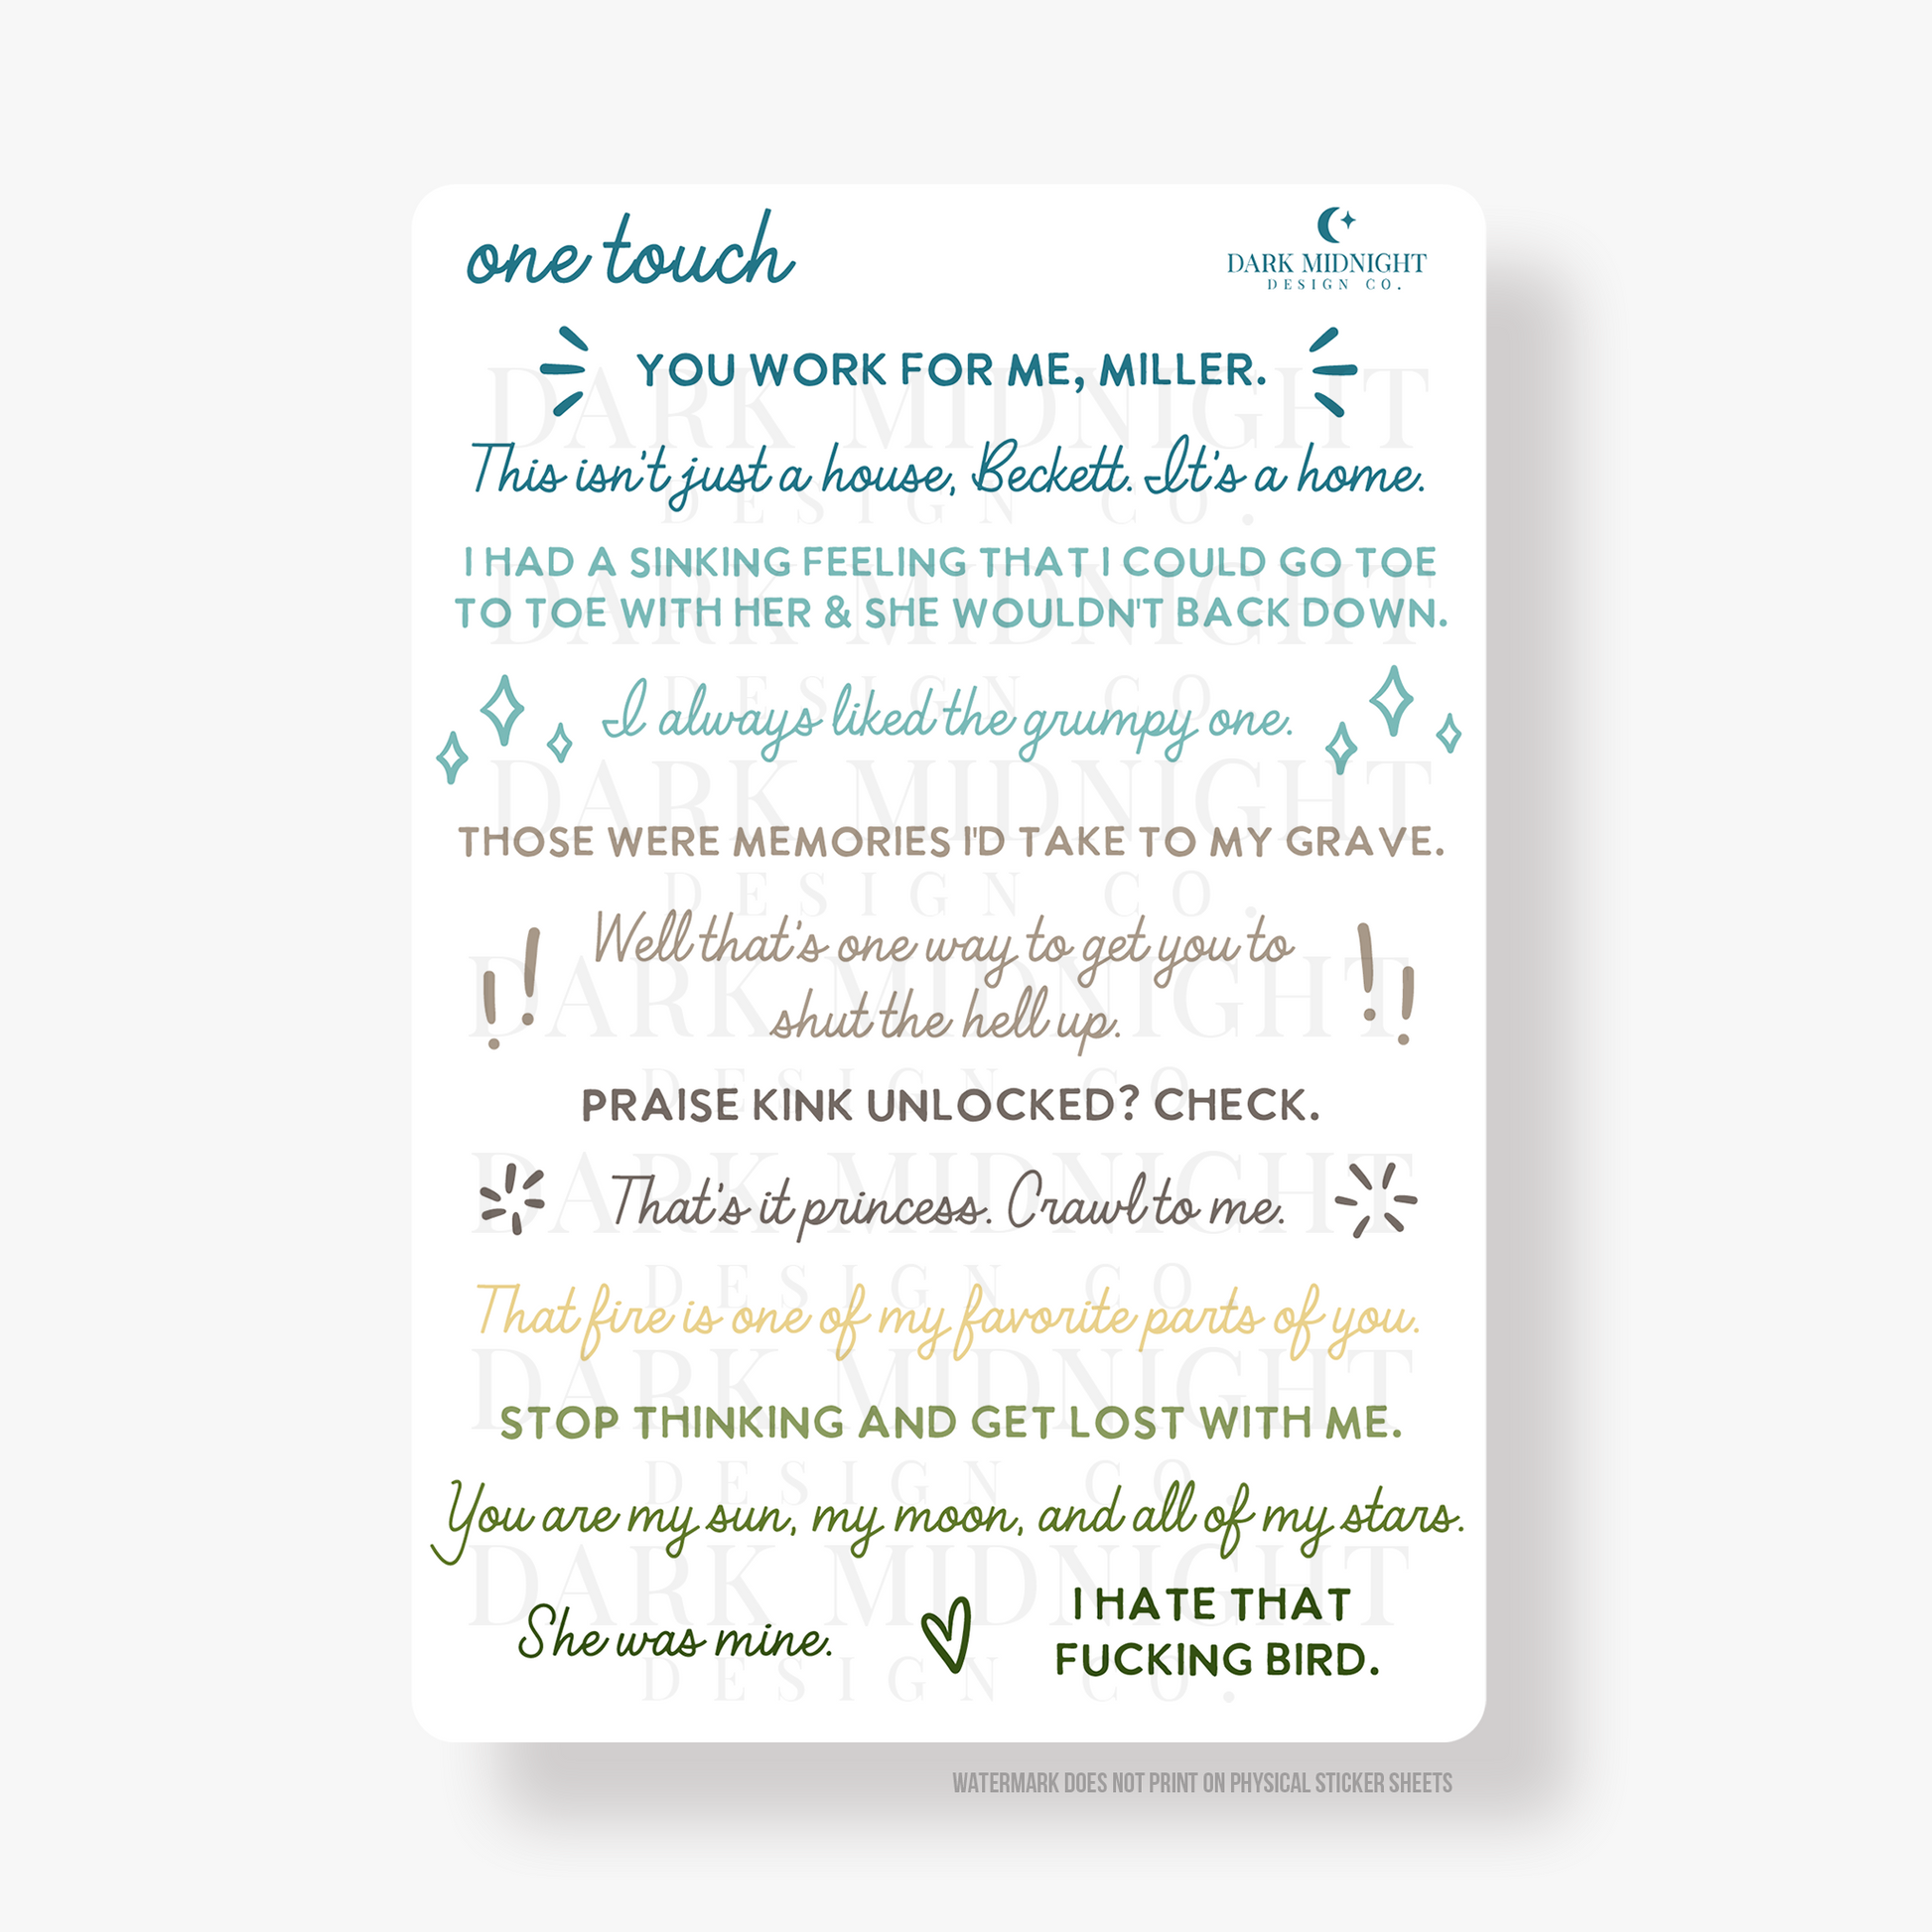 one touch
DARK MIDNIGHT
DESIGN CO.
YOU WORK FOR ME, MILLER.
This isn't just a house, Beckett. It's a home.
I HAD A SINKING FEELING THAT I COULD GO TOE
TO TOE WITH HER & SHE WOULDN'T BACK DOWN.
I always liked the grumpy one.
THOSE WERE MEMORIES I'D TAKE TO MY GRAVE.
Well that's one way to get you to
shut the hell up.
PRAISE KINK UNLOCKED? CHECK.
That's it princess. Crawl to me.
That fire is one of my favorite parts of you.
STOP THINKING AND GET LOST WITH ME.
You are my sun, my moon, and all of my stars.
She was mine.
I HATE THAT
FUCKING BIRD.
DARK MIDNIGHT
DESIGN CO.
DARK MIDNIGHT
DESIGN CO.
DARK MIDNIGHT
DESIGN CO.
DARK MIDNIGHT
DESIGN CO.
DARK MIDNIGHT
DESIGN CO.
DARK MIDNIGHT
DESIGN CO.
DARK MIDNIGHT
DESIGN CO.
WATERMARK DOES NOT PRINT ON PHYSICAL STICKER SHEETS